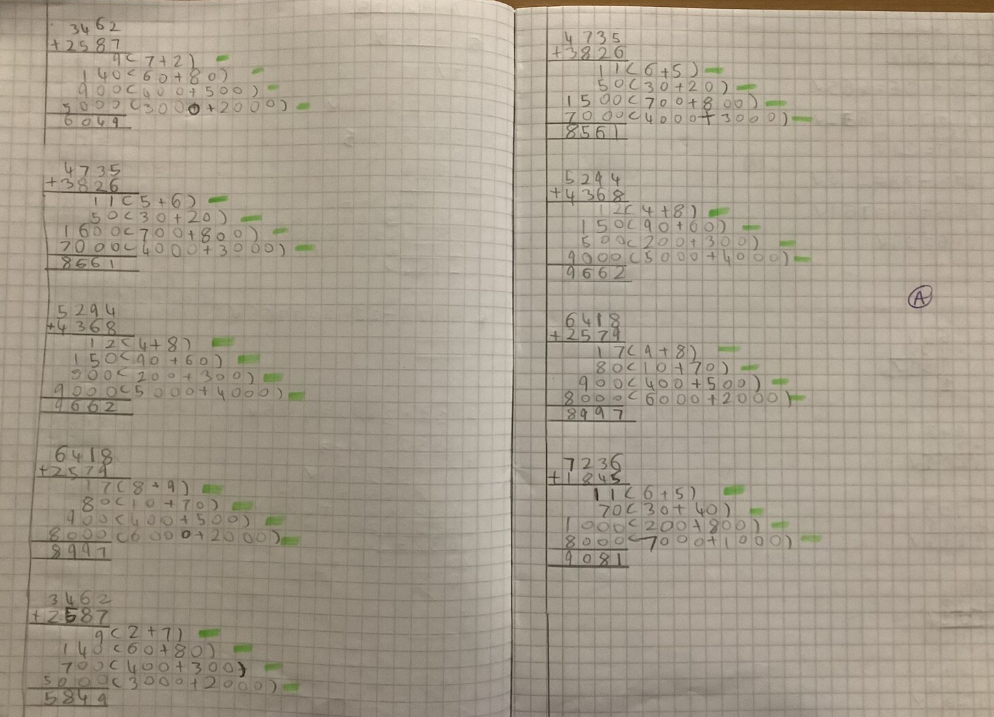 3462
+2587
9(7+2)
140(60+80)
900(400+500)
5000(3000+2000)
6049
4735
+3826
11(5+6)
50(30+20)
1600(700+800)
7000(4000+3000)
8661
5294
+4368
12(4+8)
150(90+60)
500(200+300)
9000(5000+4000)
9662
6418
+2579
17(8+9)
80(10+70)
900(400+500)
8000(6000+2000)
8997
3462
+2587
9(2+7)
140(60+80)
700(400+300)
5000(3000+2000)
5849
4735
+3826
11(6+5)
50(30+20)
1500(700+800)
7000(4000+3000)
8561
5294
+4368
12(4+8)
150(90+60)
500(200+300)
9000(5000+4000)
9662
6418
+2579
17(9+8)
80(10+70)
900(400+500)
8000(6000+2000)
8997
7236
+1845
11(6+5)
70(30+40)
1000(200+800)
8000(7000+1000)
9081
A